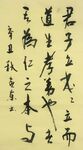 君子务本々立而
道生孝弟也者
其為仁之本与
辛丑秋